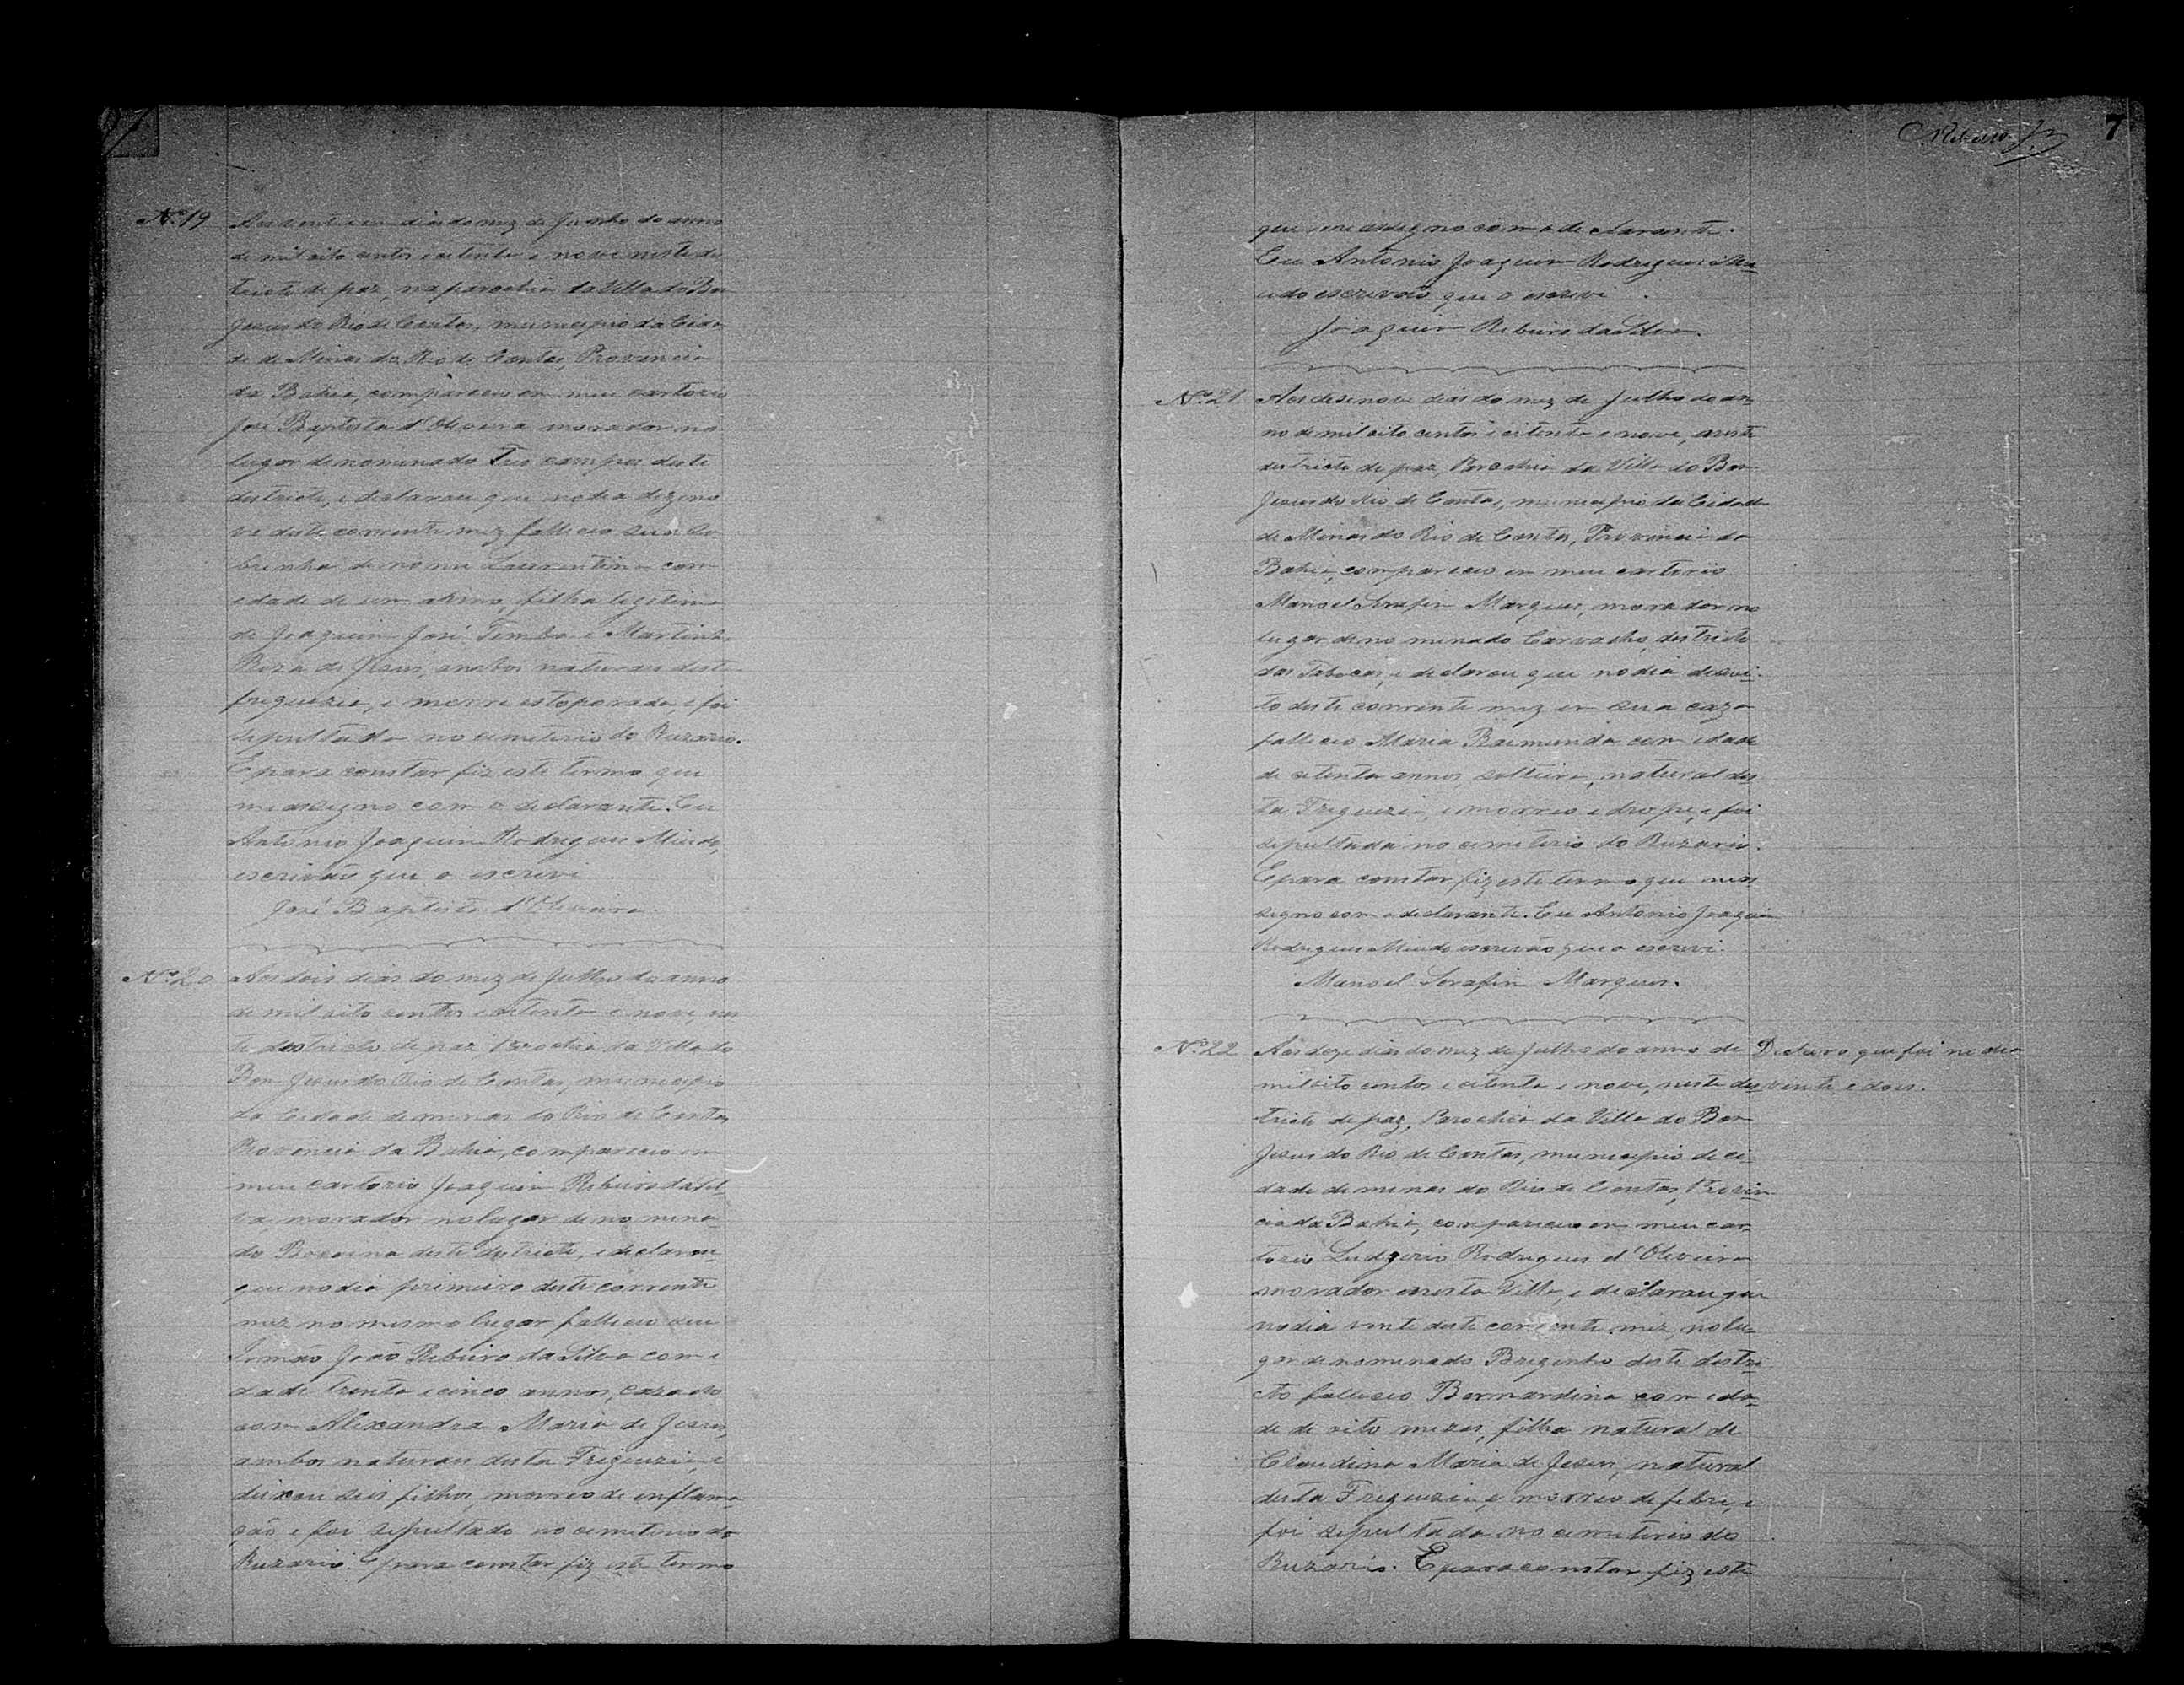 Nº 19 Aos vinte e um dias do mez de Junho do anno
de mil oito centos e oitenta e nove neste dis
tricto de paz, na parochia da Villa do Bom
Jesus do Rio de Contas, municipio da Cida
de de Minas do Rio de Contas, Provincia
da Bahia, compareceu em meu cartorio
José Baptista d'Oliveira morador no
lugar denominado Tres campos deste
districto, e declarou que no dia dezeno
ve deste corrente mez falleceu sua so
brinha de nome Laurentina com
idade de um anno, filha legitima
de Joaquim José e Martinha
Roza de Jesus, ambos naturaes desta
freguezia, e morre estoporada, e foi
sepultada no cemeterio do Ruzario.
E para constar fiz este termo que
me assigno com o declarante. Eu
Antonio Joaquim Rodrigues Miudo,
escrivão que o escrevi
José Baptista d'Oliveira.
Nº 20 Aos dois dias do mez de Julho do anno
de mil oito centos e oitenta e nove, nes
te destricto de paz, Parochia da Villa do
Bom Jesus do Rio de Contas, municipio
da Cidade de minas do Rio de Contas,
Provincia da Bahia, compareceu em
meu cartorio Joaquim Ribeiro da Sil-
va, morador no lugar denomina-
do deste destricto, e declarou
que no dia primeiro deste corrente
mez no mesmo lugar falleceu seu
Irmão João Ribeiro da Silva com i
dade trinta e cinco annos, cazado
com Alexandra Maria de Jesus,
ambos naturaes desta Freguezia, e
deixou seis filhos, morreo de enflama
ção e foi sepultado no cemeterio do
Ruzario. E para constar fiz este termo
Ribeiro Jr 7
que me assigno com o declarante.
Eu Antonio Joaquim Rodrigues Miu-
do escrivão que o escrevi.
Joaquim Ribeiro da Silva.
Nº 21 Aos desenove dias do mez de Julho do an-
no de mil oito centos e oitenta e nove, neste
destricto de paz, Parochia da Villa do Bom
Jesus do Rio de Contas, municipio da Cidade
de Minas do Rio de Contas, Provincia da
Bahia, compareceu em meu cartorio
Manoel Serafim Marques, morador no
lugar denominado Carvalho, destricto
das Tabocas, e declarou que no dia desoi-
to deste corrente mez em sua caza
falleceo Maria Raimunda com idade
de oitenta annos, solteira, natural des
ta Freguezia, e morreo e foi
sepultada no cemeterio do Ruzario.
E para constar fiz este termo que meas
signo com o declarante. Eu Antonio Joaquim
Rodrigues Miudo escrivão que o escrevi.
Manoel Serafim Marques.
Nº 22 Aos doze dias do mez de Julho do anno de Declaro que foi no dia
mil oito centos e oitenta e nove, neste des vinte e dois.
tricto de paz, Parochia da Villa do Bom
Jesus do Rio de Contas, municipio da ci-
dade de minas do Rio de Contas, Provin-
cia da Bahia, compareceu em meu car
torio Ludgerio Rodrigues d'Oliveira
morador nesta Villa, e declarou que
no dia vinte deste corrente mez, no lu-
gar denominado Breginho deste destri
cto falleceo Bernardina com ida-
de de oito mezes, filha natural de
Claudina Maria de Jesus, natural
desta Freguezia, e morreo de febre, e
foi sepultada no cemeterio do
Ruzario. E para constar fiz este